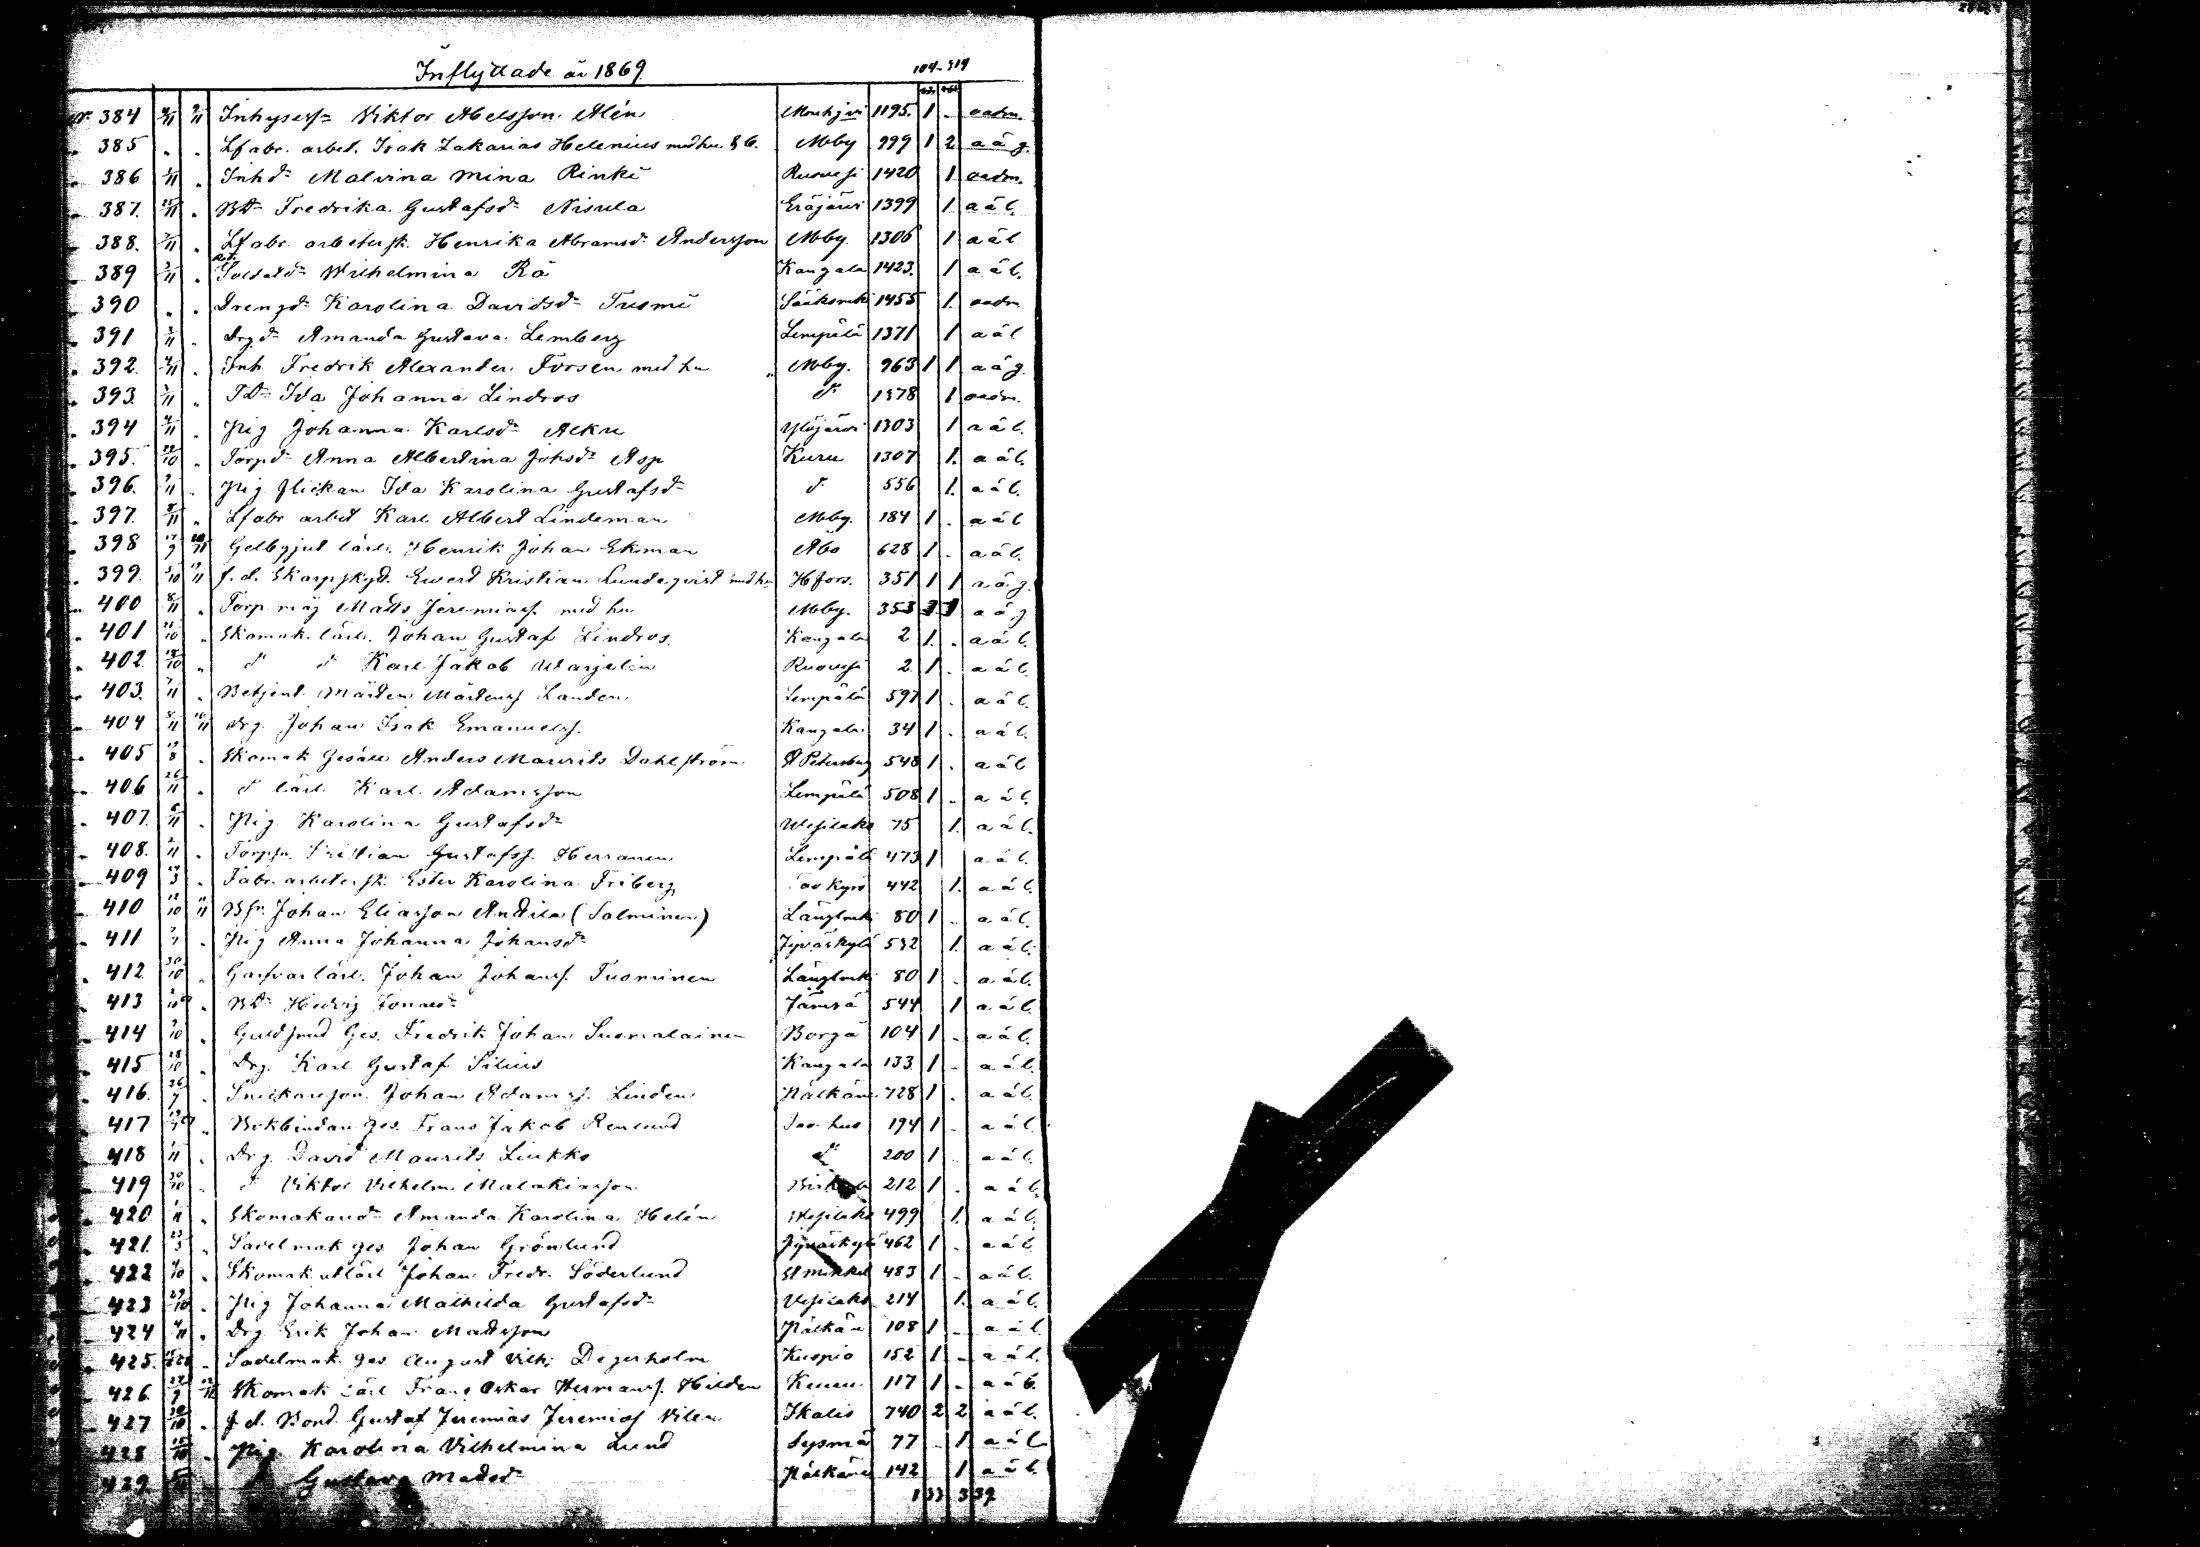 Inflyttade år 1869.
104-319
Nr 384 4/11 9/11 Inhyses s= Viktor Abelsson Alén Mouhijvi 1195. 1 - oadm.
" 385 " " Lfabr. arbet. Isak Zakarias Helenius med hu. & b. Mby 999 1 2 a ä g.
" 386 /11 " Inhd= Malvina Mina Rinki Ruovesi 1420 1 oadm.
" 387. /11 " Bd= Fredrika Gustafsd= Nisula Eräjärvi 1399 1 a ä l.
" 388. /11 " Lfabr. arbetersk. Henrika Abramsd= Andersson Mby. 1306 1 a ä l
" 389 /11 " Soldatd= Wilhelmina Rö Kangala 1423. 1 a ä l.
" 390 " " Drengd= Karolina Davidsd= Tuomi Sääksmäki 1455 1. oadm
" 391 /11 " Drgd= Amanda Gustava Lemberg Lempälä 1371 1 a ä l
" 392. 4/11 " Inh. Fredrik Alexander Forsen med hu Mby. 963 1 1 a ä g.
" 393. /11 " Td= Ida Johanna Lindros d= 1378 1 oadm.
" 394 4/11 " Pig Johanna Karlsd= Alku Ylöjärvi 1303 1 a ä l.
" 395. /10 " Torpd= Anna Albertina Johsd= Asp Kuru 1307 1. a ä l.
" 396. /11 " Pig flickan Ida Karolina Gustafsd= d= 556 1. a ä l.
" 397. 8/11 " Lfabr arbet Karl Albert Lindeman Mby. 184 1 - a ä l
" 398 17/9 10/11 Gelbgjut lärl. Henrik Johan Ekman Åbo 628 1 - a ä l.
" 399. 5/10 /11 f. d. Skarpskyt. Ewert Kristian Lundeqvist med hu Hfors. 351 1 1 a ä g.
" 400 8/11 " Torp. måg Matts Jeremiass. med hu Mby. 353 1 1 a ä g
" 401 /10 " Skomak. lärl. Johan Gustaf Lindros. Kangala 2 1. - a ä l.
" 402. 18/10 " d= d= Karl Jakob Warjelin Ruovesi 2 1 - a ä l.
" 403. 7/11 " Betjent. Mårten Mårtenss Landen Lempälä 597 1 - a ä l.
" 404 8/11 10/11 Drg. Johan Isak Emanuelss. Kangala 34 1 - a ä l.
" 405 17/8 " Skomak Gesäll Anders Maurits Dahlström St Petersburg 548 1 - a ä l
" 406 26/11 " d= lärl. Karl Adamsson Lempälä 508 1 - a ä l.
" 407. 6/11 " Pig. Karolina Gustafsd= Wesilaks 75 1. a ä l.
" 408. 2/11 " Torpsn. Kristian Gustafss. Herranen Lempälä 473 1 a ä l.
" 409 /3 " Fabr. arbetersk. Ester Karolina Friberg Tav Kyro 442 1. a ä l.
" 410 12/10 /11 Bs= Johan Eliasson Anttila (Salminen) Länglmki 80 1 - a ä l.
" 411 " Pig Anna Johanna Johansd= Jyväskylä 532 1. a ä l.
" 412. 30/10 " Garfvar lärl. Johan Johanss. Tuominen Länglmki 80 1 - a ä l.
" 413 " Bd= Hedvig Jonasd= Jämsä 544 1 a ä l.
" 414 /10 " Guldsmd Ges. Fredrik Johan Suomalainen Borgå 104 1 - a ä l.
" 415 18/10 " Drg. Karl Gustaf Silius Kangala 133. 1 - a ä l.
" 416. 26/9 " Snickarsson. Johan Adamss. Linden Pälkäne 728 1 - a ä l.
" 417 " Bokbindar ges. Frans Jakob Renlund Tav. hus 194 1 - a ä l.
" 418 /11 " Drg. David Maurits Liukko d= 200 1 - a ä l.
" 419 30/10 " d= Viktor Vilhelm Malakiasson Birkala 212 1 - a ä l.
" 420 /11 " Skomakared= Amanda Karolina Helén Wesilaks 499 1. a ä l.
" 421. 23/3 " Sadelmak ges. Johan Grönlund Jyväskylä 462 1 - a ä l.
" 422 /10 " Skomak. utlärl Johan Fredr. Söderlund St Mikkel 483 1 - a ä l.
" 423 29/10 " Pig Johanna Mathilda Gustafsd= Vesilaks 214 1. a ä l.
" 424 4/11 " Drg Erik Johan Mattsson Pälkäne 108 1 - a ä l
" 425. " Sadelmak. ges August Vilh. Degerholm Kuopio 152 1 - a ä l.
" 426. 22/9 12/11 Skomak. lärl Frans Oskar Hermanss. Hilden Kuru 117 1 - a ä l.
" 427 /10 " f. d. Bond. Gustaf Jeremias Jeremiass Vilen Ikalis 740 2 2 a ä l.
" 428 15/10 " Pig. Karolina Vilhelmina Lund Sysmä 77 - 1 a ä l
" 429 /11 Gustava Matsd= Pälkäne 142 1 a ä l.
133 339